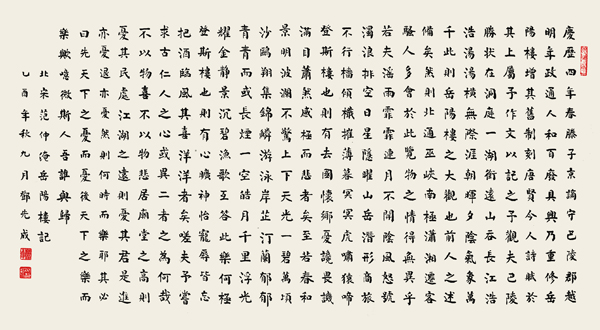 慶歷四年春滕子京謫守巴陵郡越
明年政通人和百廢具興乃重修岳
陽樓增其舊制刻唐賢今人詩賦於
其上屬予作文以記之予觀夫巴陵
勝狀在洞庭一湖銜遠山吞長江浩
浩湯湯橫無際涯朝暉夕陰氣象萬
千此則岳陽樓之大觀也前人之述
備矣然則北通巫峽南極瀟湘遷客
騷人多會於此覽物之情得無異乎
若夫淫雨霏霏連月不開陰風怒號
濁浪排空日星隱曜山岳潛形商旅
不行檣傾楫摧薄暮冥冥虎嘯猿啼
登斯樓也則有去國懷鄉憂讒畏譏
滿目蕭然感極而悲者矣至若春和
景明波瀾不驚上下天光一碧萬頃
沙鷗翔集錦鱗游泳岸芷汀蘭郁郁
青青而或長煙一空皓月千里浮光
耀金靜景沉碧漁歌互答此樂何極
登斯樓也則有心曠神怡寵辱皆忘
把酒臨風其喜洋洋者矣嗟夫予嘗
求古仁人之心或異二者之為何哉
不以物喜不以物悲居廟堂之高則
憂其民處江湖之遠則憂其君是進
亦憂退亦憂然則何時而樂耶其必
曰先天下之憂而憂後天下之樂而
樂歟噫微斯人吾誰與歸
北宋范仲淹岳陽樓記
乙酉年秋九月鄧